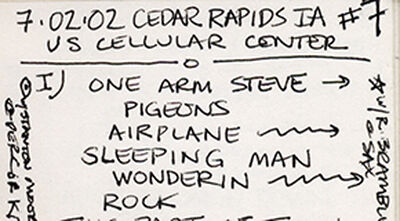 7.02.02 CEDAR RAPIDS IA #7
US CELLULAR CENTER
I) ONE ARM STEVE →
PIGEONS
AIRPLANE →
SLEEPING MAN
WONDERIN →
ROCK